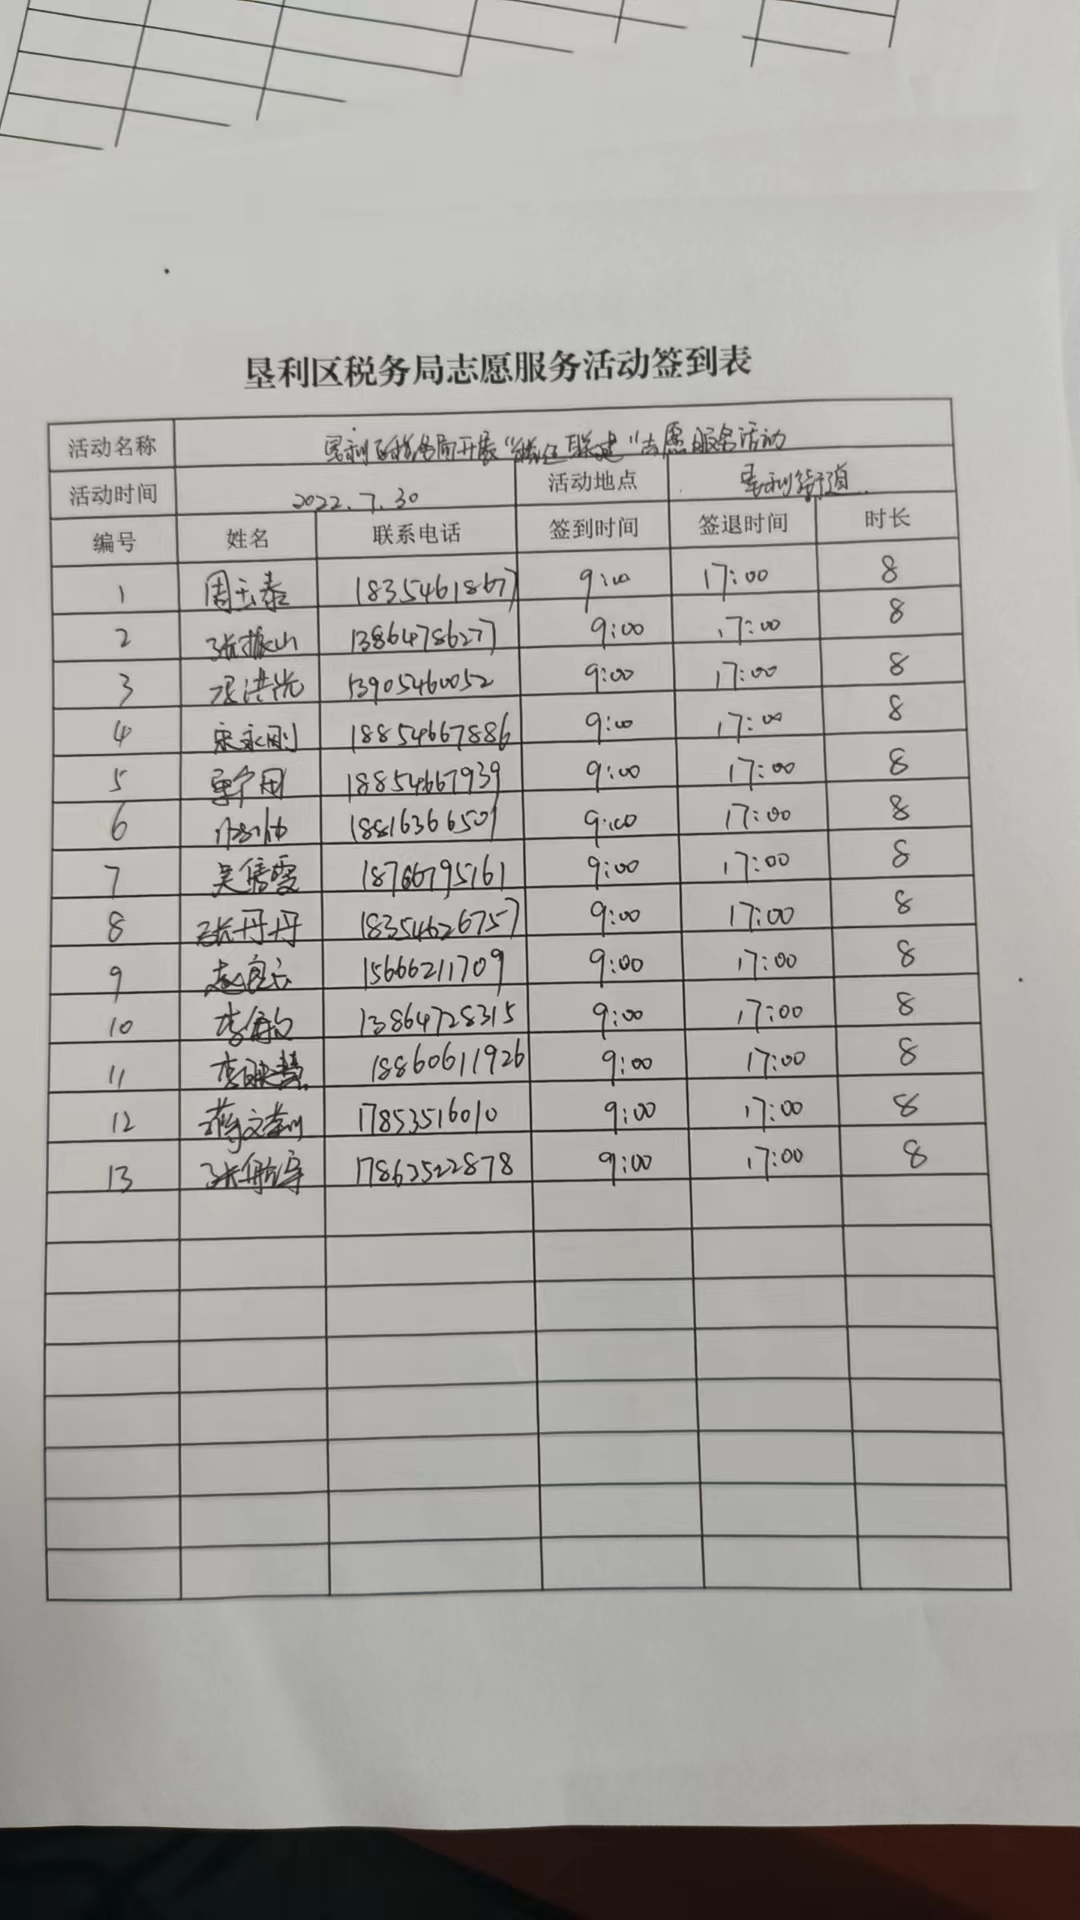 垦利区税务局志愿服务活动签到表
活动名称 垦利区税务局开展“ 联建”志愿服务活动
活动时间 2022.7.30 活动地点 垦利街道
编号 姓名 联系电话 签到时间 签退时间 时长
1 周玉泰 18354618677 9:00 17:00 8
2 张振山 13864786277 9:00 17:00 8
3 13905460052 9:00 17:00 8
4 宋永刚 18854667886 9:00 17:00 8
5 18854667939 9:00 17:00 8
6 18816366501 9:00 17:00 8
7 吴倩雯 18766795161 9:00 17:00 8
8 张丹丹 18354626757 9:00 17:00 8
9 15666211709 9:00 17:00 8
10 13864728315 9:00 17:00 8
11 18860611926 9:00 17:00 8
12 17853516010 9:00 17:00 8
13 张航宇 17863522878 9:00 17:00 8